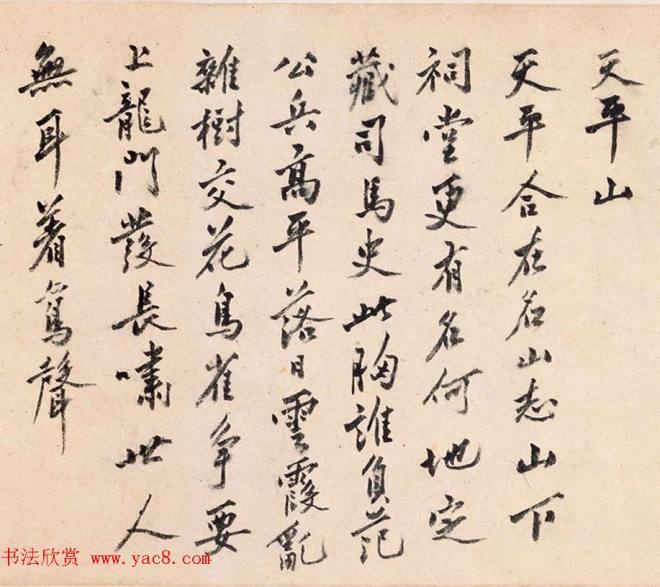 天平山
天平合在名山志山下
祠堂更有名何地定
藏司馬史此胸誰負范
公兵高平落日雲霞亂
雜樹交花鳥雀爭要
上龍門發長嘯世人
無耳著鸞聲
书法欣赏 www.yac8.com